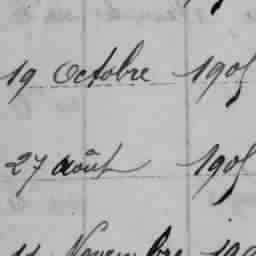 19 Octobre 1905
27 août 1905
11 Novembre 190